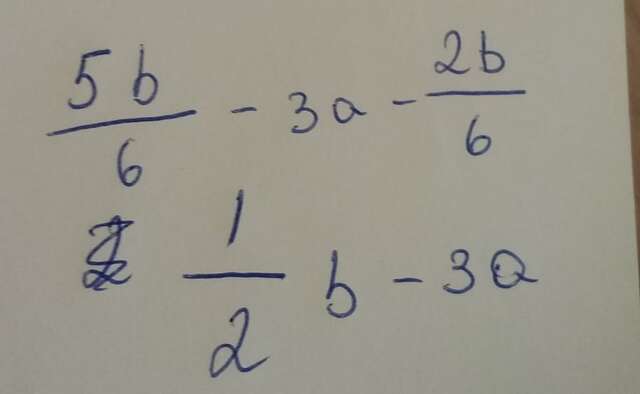 5b/6 - 3a - 2b/6
1/2 b - 3a